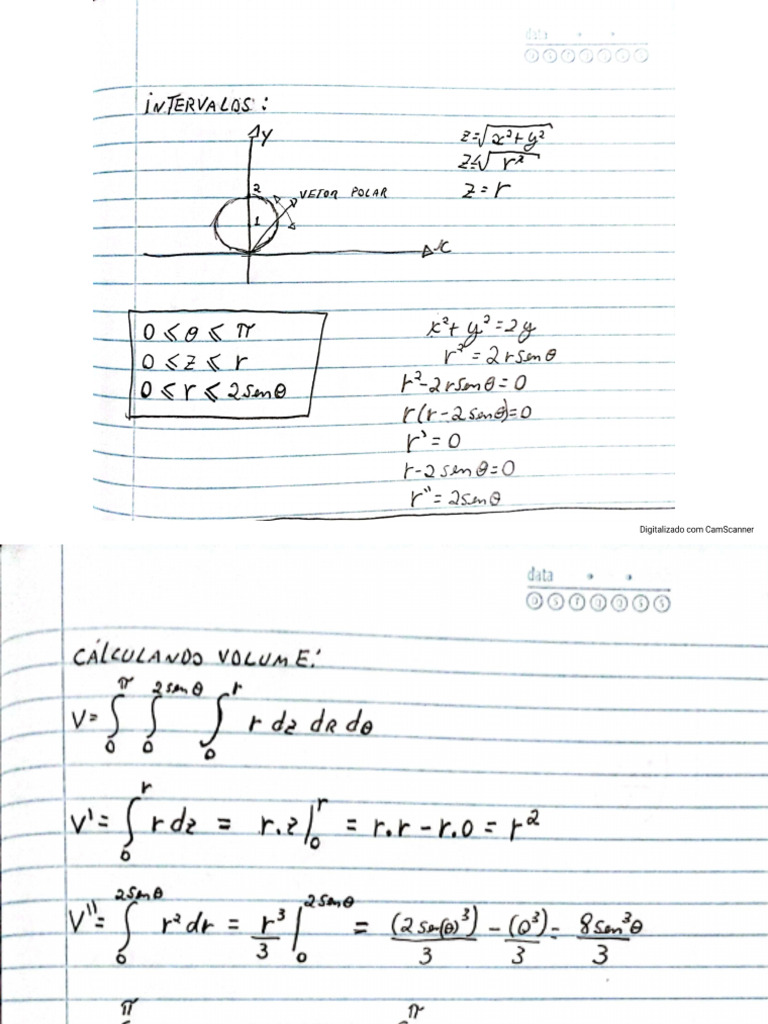 data
INTERVALOS:
y
2
VETOR POLAR
1
x
z=√x²+y²
z=√r²
z=r
0 ≤ θ ≤ π
0 ≤ z ≤ r
0 ≤ r ≤ 2senθ
x²+y²=2y
r²=2rsenθ
r²-2rsenθ=0
r(r-2senθ)=0
r'=0
r-2senθ=0
r''=2senθ
Digitalizado com CamScanner
data
CÁLCULANDO VOLUME:
V=∫₀^π ∫₀^2senθ ∫₀^r r dz dR dθ
V'=∫₀^r r dz = r.z|₀^r = r.r - r.0 = r²
V''=∫₀^2senθ r² dr = r³/3 |₀^2senθ = (2sen(θ)³)/3 - (0³)/3 - 8sen³θ/3
π π